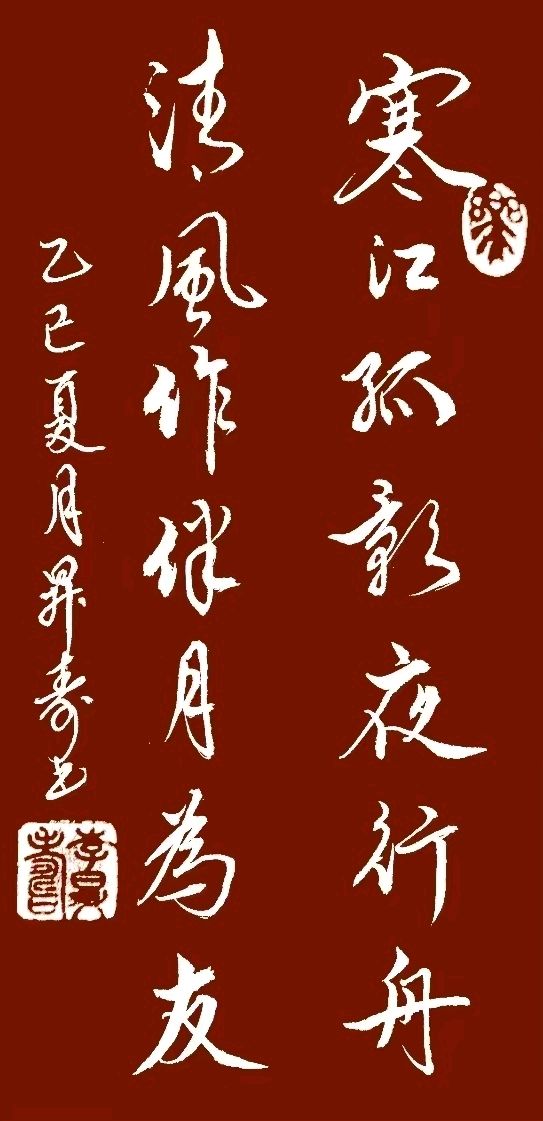 寒江孤影夜行舟
清風作伴月為友
乙巳夏月昇壽书